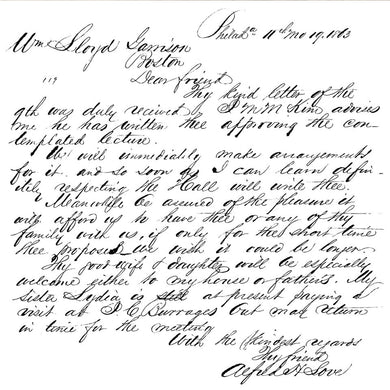 Philada 11th Mo 19, 1863
Wm Lloyd Garrison
Boston
Dear friend
Thy kind letter of the
9th was duly recieved J M McKim advises
me he has written thee approving the con-
templated lecture.
We will immediately make arrangements
for it. and so soon as I can learn defin-
itely respecting the Hall will write thee.
Meanwhile be assured of the pleasure it
will afford us to have thee or any of thy
family with us, if only for the short time
thee proposed we wish it could be longer
Thy good wife & daughter will be especially
welcome either to my house or father's. My
sister Lydia is still at present paying a
visit at J. C. Burrages but may return
in time for the meeting
With the kindest regards
Thy friend
Alfred H Love